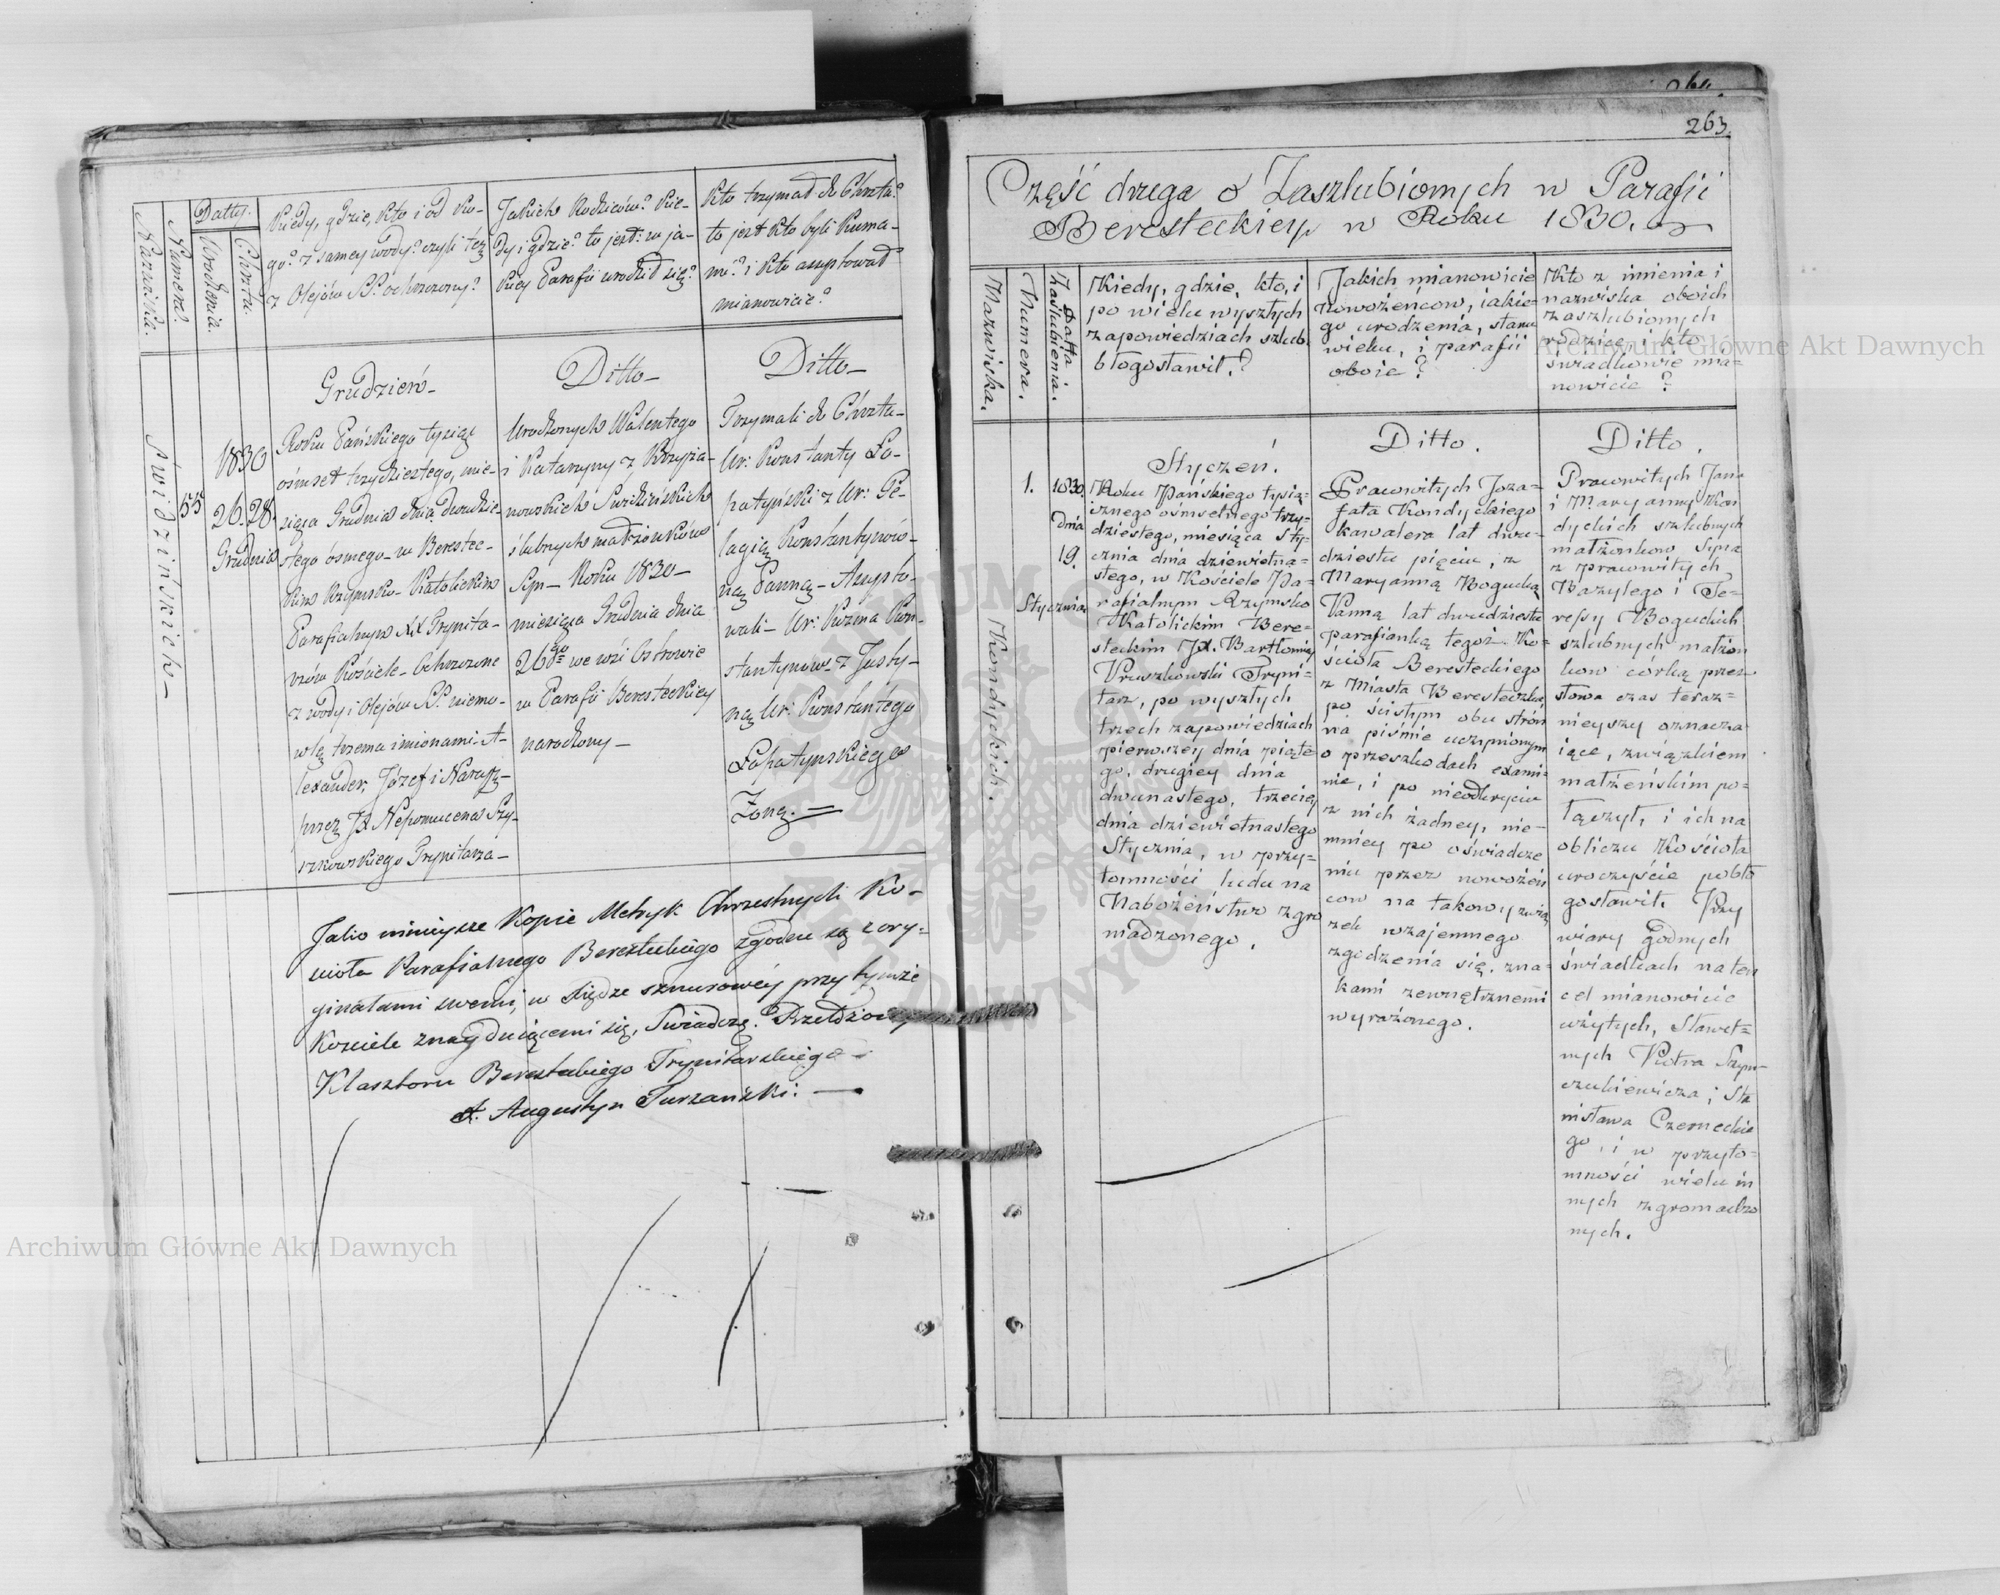 Nazwiska.
Numera.
Datty.
Urodzenia.
Chrztu.
Kiedy, gdzie, kto i od ko-
go? z samey wody? czyli też
z Olejów SS. ochrzczony?
Jakich Rodziców? kie-
dy i gdzie? to jest: w ja-
kiey Parafii urodził się?
Kto trzymał do Chrztu?
to jest kto byli kuma-
mi? i kto assystował
mianowicie?
Świdzińskich
55
1830
26. 28.
Grudnia
Grudzień
Roku Pańskiego tysiąc
ośmset trzydziestego, mie-
siąca Grudnia dnia dwudzie-
stego ósmego w Berestec-
kim Rzymsko-Katolickim
Parafialnym XX Trynita-
rzów Kościele Ochrzczone
z wody i Olejów SS. niemo-
wlę trzema imionami: A-
lexander, Józef i
przez JX Nepomucena Szy-
szkowskiego Trynitarza
Ditto
Urodzonych Walentego
i Katarzyny z Krzyża-
nowskich Świdzińskich
ślubnych małżonków
Syn Roku 1830
miesiąca Grudnia dnia
26go we wsi Ostrowie
w Parafii Beresteckiey
narodzony
Ditto
Trzymali do Chrztu
Ur: Konstanty Ło-
patyński z Ur: Pe-
lagią Konstantynów-
ną Panną Assysto-
wali Ur: Kozma Kon-
stantynów z Justy-
ną Ur: Konstantego
Łopatyńskiego
Żoną.
Jako ninieysze Kopie Metryk Chrzestnych Ko-
ścioła Parafialnego Beresteckiego zgodne są z ory-
ginałami swemi, w księdze sznurowéy przy tymże
Kościele znaydującemi się, Świadczę. Przełożony
Klasztoru Beresteckiego Trynitarskiego
X. Augustyn Turzański:
263.
Część druga o Zaszlubionych w Parafii
Beresteckiey w Roku 1830.
Nazwiska.
Numera.
Datta
Zaślubienia.
Kiedy, gdzie, kto, i
po wielu wyszłych
zapowiedziach szlub
błogosławił?
Jakich mianowicie
Nowożeńcow, jakie-
go urodzenia, stanu
wieku, i parafii
oboie?
Kto z imienia i
nazwiska oboich
zaszlubionych
rodzice, i kto
świadkowie mia-
nowicie?
Kondyckich.
1.
1830
dnia
19.
Stycznia
Styczeń.
Roku Pańskiego tysią-
cznego ośmsetnego trzy-
dziestego, miesiąca Sty-
cznia dnia dziewiętna-
stego, w Kościele Pa-
rafialnym Rzymsko
Katolickim Bere-
steckim JX. Bartłomiey
Pruszkowski Tryni-
tarz, po wyszłych
trzech zapowiedziach
pierwszey dnia piąte-
go, drugiey dnia
dwunastego, trzeciey
dnia dziewiętnastego
Stycznia, w przy-
tomności ludu na
Nabożeństwo zgro
madzonego.
Ditto.
Pracowitych Joza-
fata Kondyckiego
kawalera lat dwu-
dziestu pięciu, z
Maryanną Bogucką
Panną lat dwudziestu
parafianką tegoż Ko-
ścioła Beresteckiego
z Miasta Beresteczka,
po ścisłym obu strón
na piśmie uczynionym
o przeszkodach exami-
nie, i po nieodkryciu
z nich żadney, nie-
mniey po oświadcze
niu przez nowożeń
cow na takowy zwią
zek wzajemnego
zgodzenia się, zna-
kami zewnętrznemi
wyrażonego.
Ditto.
Pracowitych Jana
i Maryanny Kon
dyckich szlubnych
małżonkow Syna
z pracowitych
Bazylego i Te-
resy Boguckich
szlubnych małżon
kow córką przez
słowa czas teraz-
nieyszy oznacza-
iące, związkiem
małżeńskim po-
łączył, i ich na
obliczu Kościoła
uroczyście pobło
gosławił. Przy
wiary godnych
świadkach na ten
cel mianowicie
użytych, Sławet-
nych Piotra Szym-
czukiewicza; Sta
nisława Czerneckie
go, i w przyto-
mności wielu in
nych zgromadzo
nych.
Archiwum Główne Akt Dawnych
Archiwum Główne Akt Dawnych